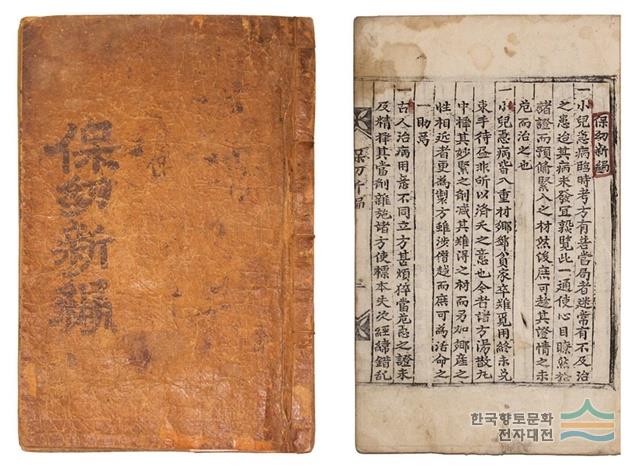 保幼新編
保幼新編
一小兒急病臨時考方有若當局者迷常有不及治
之患迨其病未發冝數覽此一通使心目瞭然於
諸證而預備緊入之材然後庶可趁其證情之未
危而治之也
一小兒急病皆入重材鄕鄰貧家卒難覓用終未免
束手待盡非所以濟夭之意也今者諸方湯散丸
中擇其妙緊之劑減其難得之材而易加鄕産之
性相近者更爲製方雖涉僭越而庶可爲活命之
一助焉
一古人治病用藥不同立方甚煩猝當危急之證未
及精擇其當劑雜施諸方使標本失次經緯錯乱
保幼新編
한국향토문화
전자대전